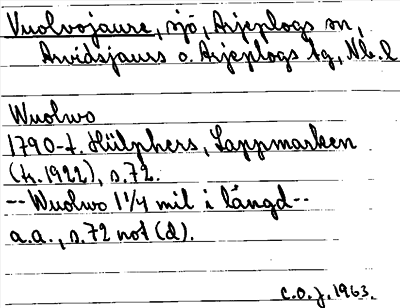 Vuolvojaure, sjö, Arjeplogs sn,
Arvidsjaurs o. Arjeplogs tg, Nb. l
Wuolwo
1790-t. Hülphers, Lappmarken
(tr. 1922), s. 72.
-- Wuolwo 1 1/4 mil i långd --
a.a., s. 72 not (d).
C.O.J. 1963.